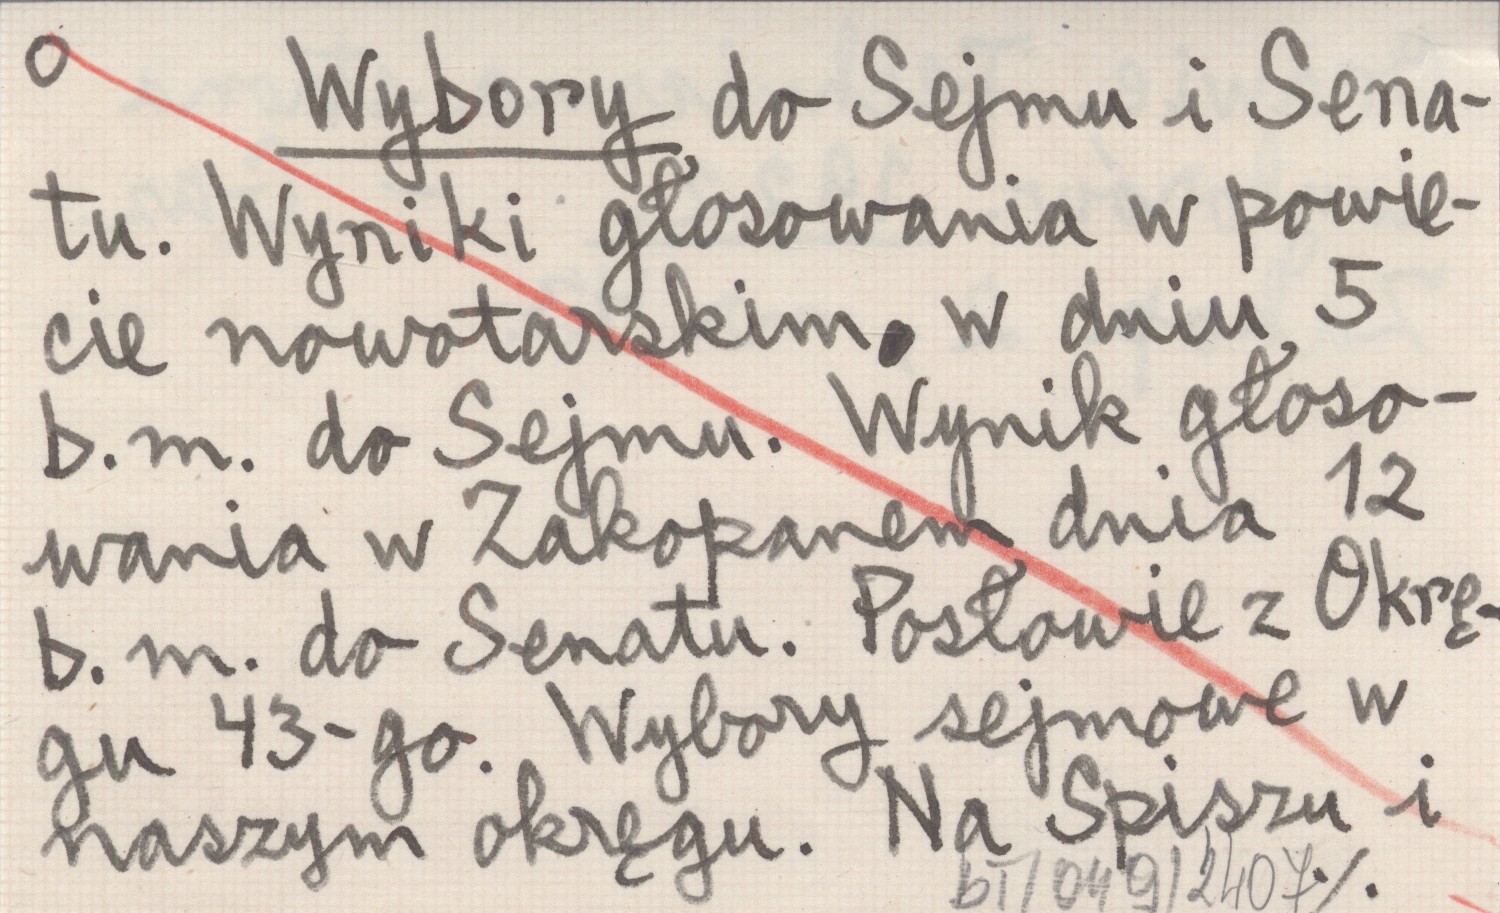 O Wybory do Sejmu i Sena-
tu. Wyniki głosowania w powie-
cie nowotarskim. w dniu 5
b.m. do Sejmu. Wynik głoso-
wania w Zakopanem dnia 12
b.m. do Senatu. Posłowie z Okrę-
gu 43-go. Wybory sejmowe w
naszym okręgu. Na Spiszu i
bT/049/2407 ./.